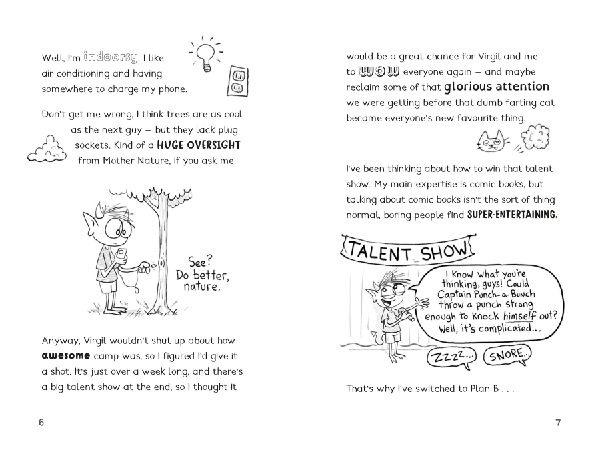 Well, I'm indoorsy. I like
air conditioning and having
somewhere to charge my phone.
Don't get me wrong, I think trees are as cool
as the next guy – but they lack plug
sockets. Kind of a HUGE OVERSIGHT
from Mother Nature, if you ask me.
See?
Do better,
nature.
Anyway, Virgil wouldn't shut up about how
awesome camp was, so I figured I'd give it
a shot. It's just over a week long, and there's
a big talent show at the end, so I thought it
6
would be a great chance for Virgil and me
to WOW everyone again – and maybe
reclaim some of that glorious attention
we were getting before that dumb farting cat
became everyone's new favourite thing.
I've been thinking about how to win that talent
show. My main expertise is comic books, but
talking about comic books isn't the sort of thing
normal, boring people find SUPER-ENTERTAINING.
TALENT SHOW
I know what you're
thinking, guys! Could
Captain Punch-a-Bunch
throw a punch strong
enough to knock himself out?
Well, it's complicated...
ZZZZ...
SNORE.
That's why I've switched to Plan B . . .
7